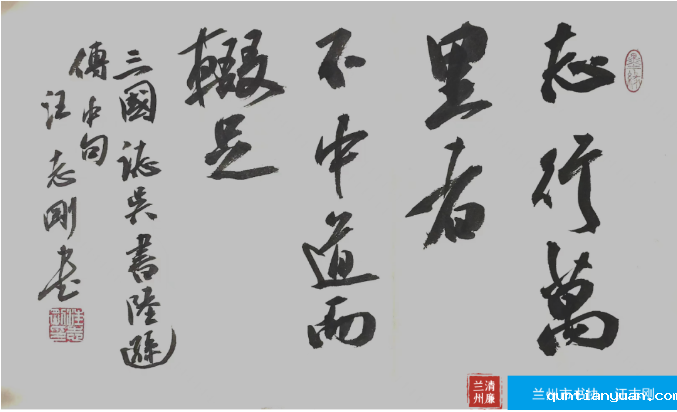 志行萬
里者
不中道而
輟足
三國誌吳書陸遜
傳中句
汪志剛書
清廉
兰州
兰州市书协 汪志刚
quntianyuan.com